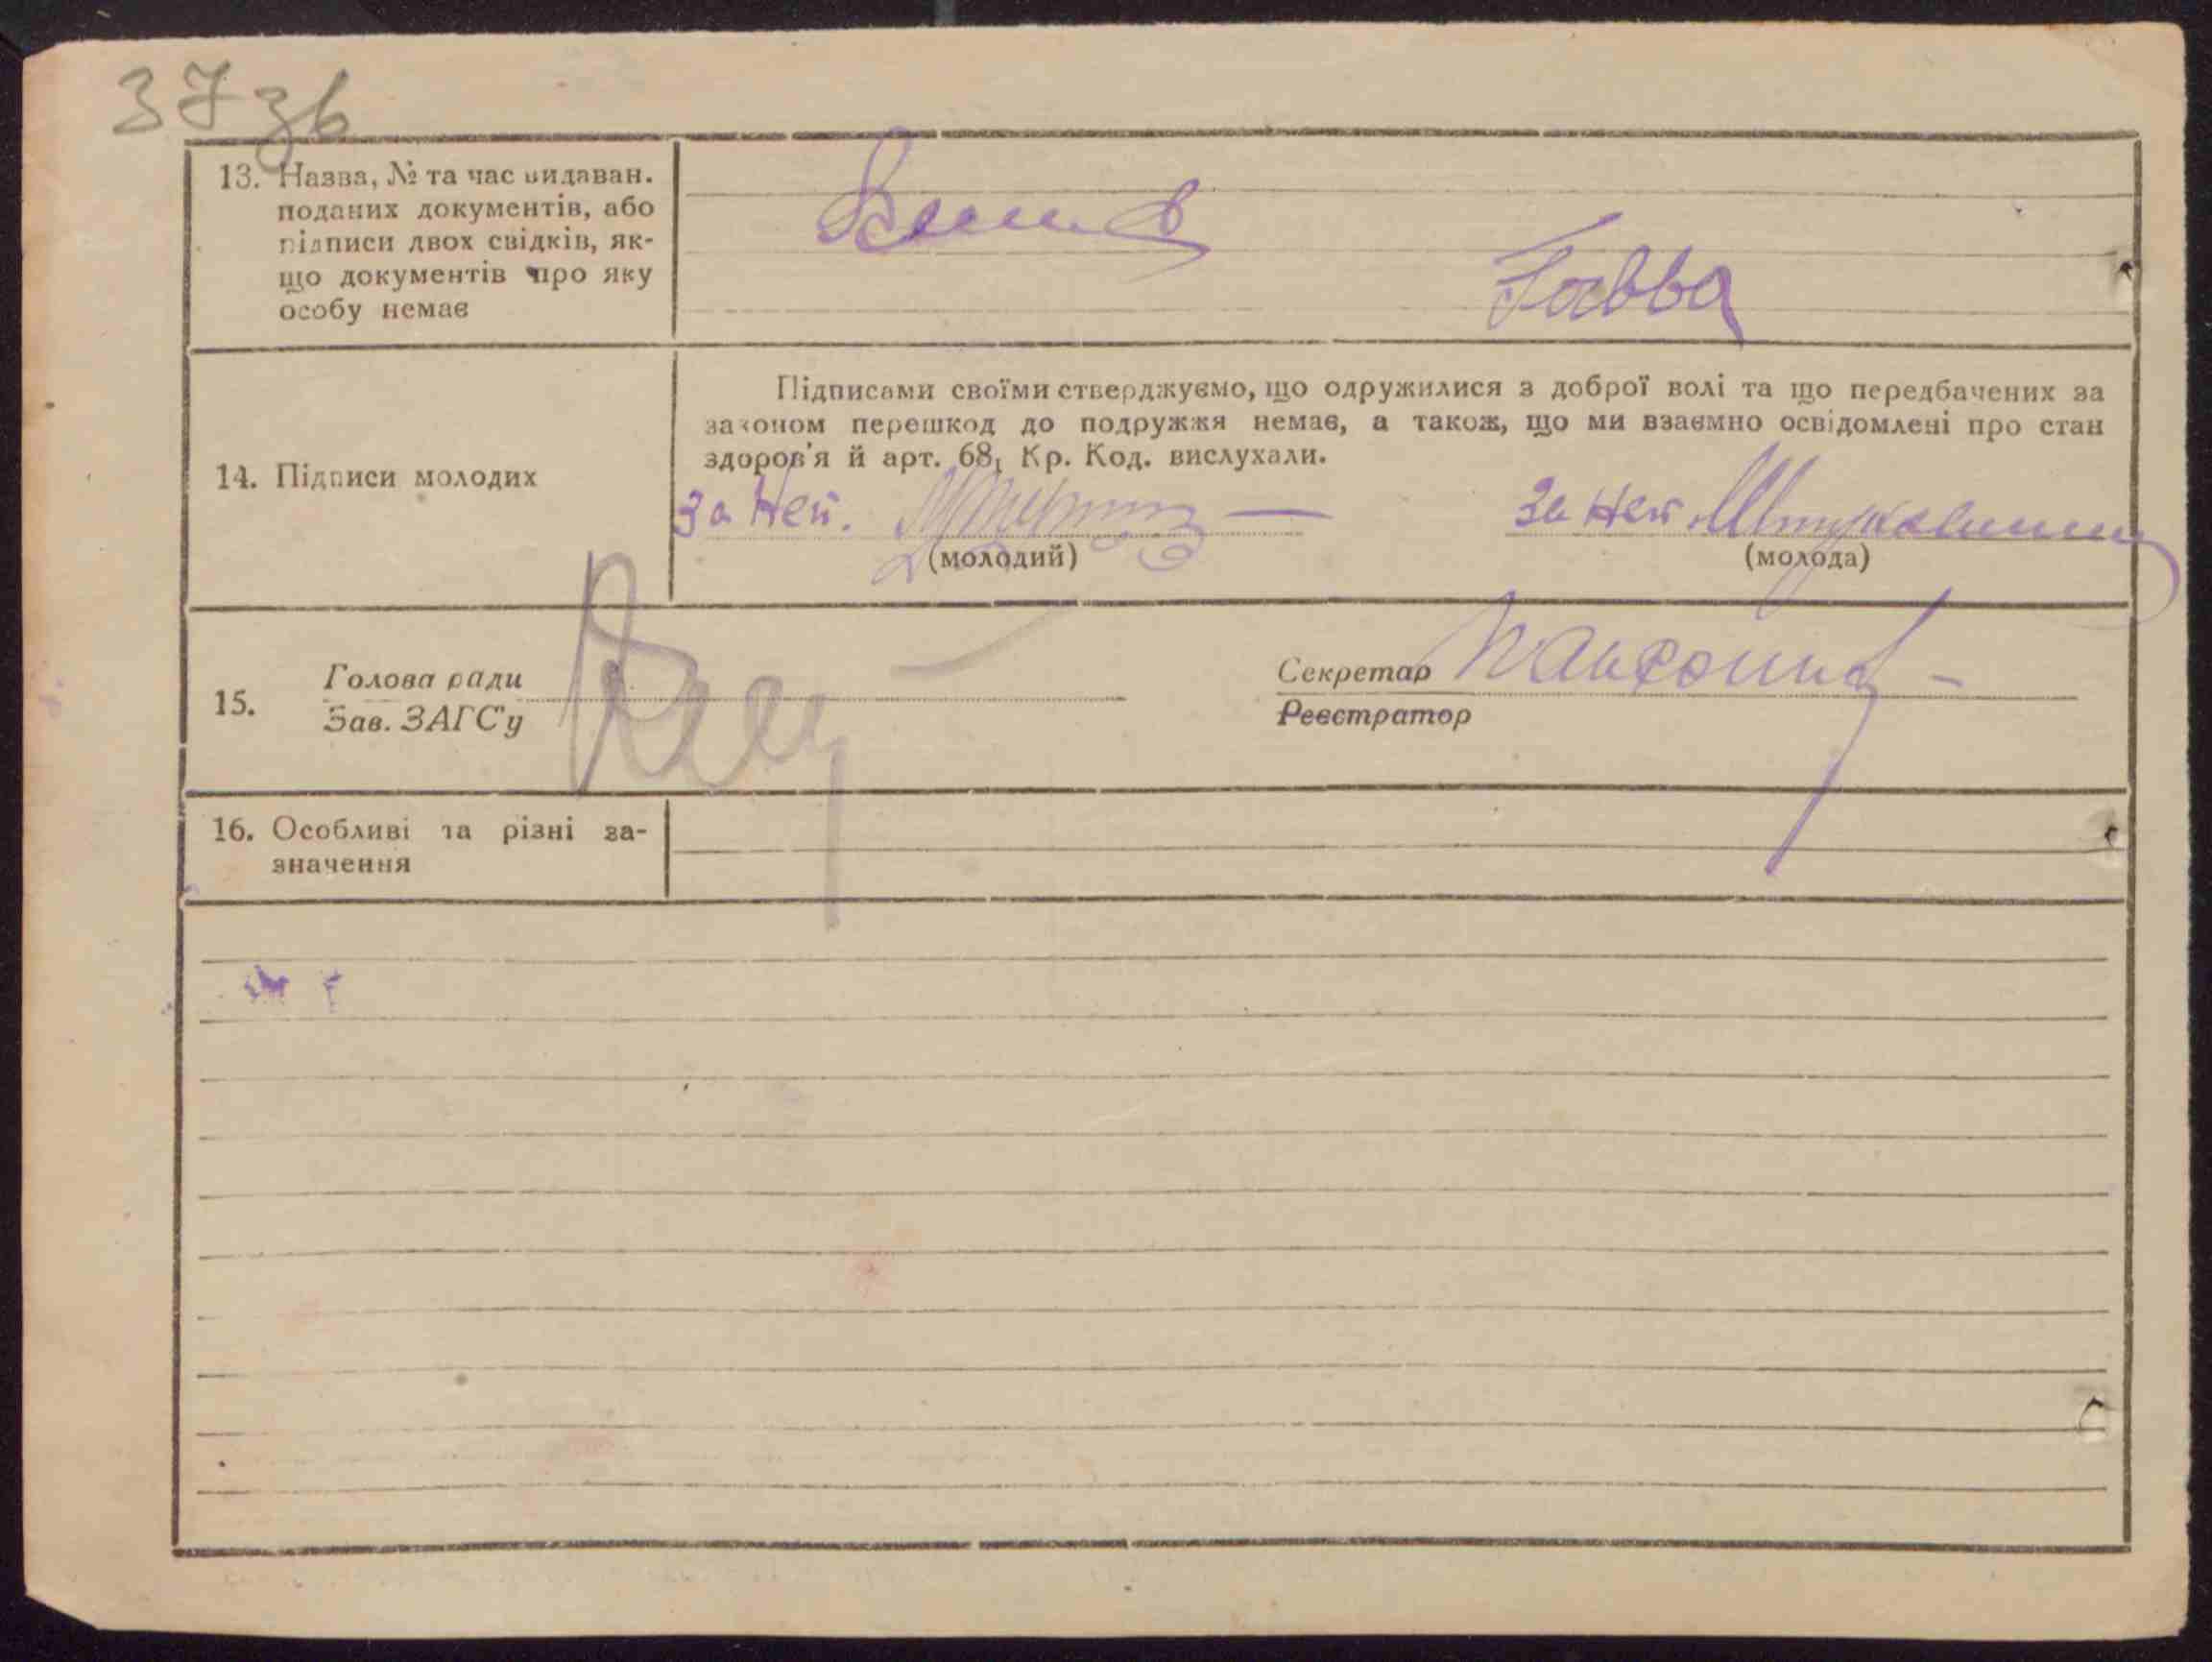 37 зв
13. Назва, № та час видаван.
поданих документів, або
підписи двох свідків, як-
що документів про яку
особу немає
Гавва
14. Підписи молодих
Підписами своїми стверджуємо, що одружилися з доброї волі та що передбачених за
законом перешкод до подружжя немає, а також, що ми взаємно освідомлені про стан
здоров'я й арт. 68₁ Кр. Код. вислухали.
За неп.
За неп.
(молодий)
(молода)
15.
Голова ради
Зав. ЗАГС'у
Секретар
Реєстратор
16. Особливі та різні за-
значення